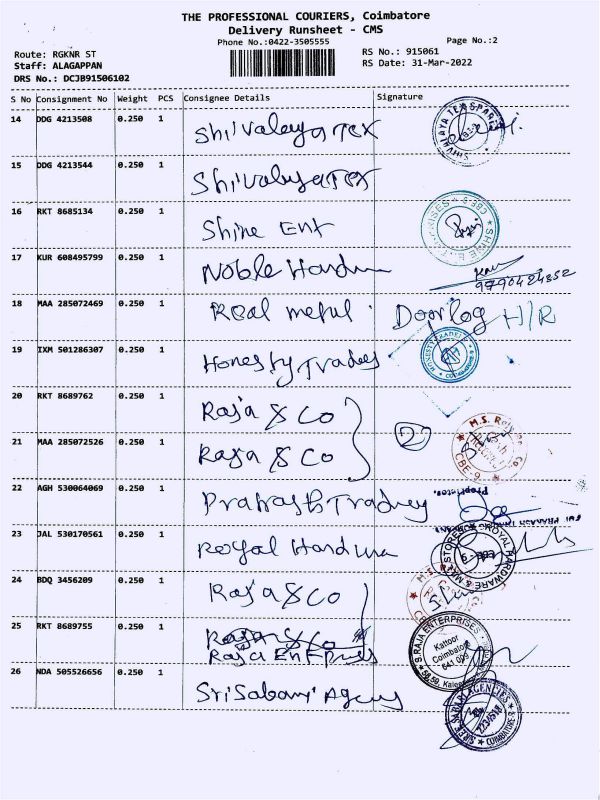 THE PROFESSIONAL COURIERS, Coimbatore
Delivery Runsheet - CMS
Phone No.:0422-3505555
Page No.:2
Route: RGKNR ST
RS No.: 915061
Staff: ALAGAPPAN
RS Date: 31-Mar-2022
DRS No.: DCJB91506102
S No Consignment No Weight PCS Consignee Details Signature
14 DDG 4213508 0.250 1 Shivalaya TEX
15 DDG 4213544 0.250 1 Shivalaya TEX
16 RKT 8685134 0.250 1 Shine Ent
17 KUR 608495799 0.250 1 Noble Hardw
9790424352
18 MAA 285072469 0.250 1 Real metal Doorlog H/R
19 IXM 501286307 0.250 1 Honesty Trades
20 RKT 8689762 0.250 1 Raja & Co
21 MAA 285072526 0.250 1 Raja & Co
22 AGH 530064069 0.250 1 Prakash Tradrey
Proprietor
23 JAL 530170561 0.250 1 Royal Hardwa
ROYAL HARDWARE & MILL STORE
24 BDQ 3456209 0.250 1 Raja & Co
25 RKT 8689755 0.250 1 Raja & Co
Raja Entpries
S.RAJA ENTERPRISES
Kattoor
Coimbatore
641 009
26 NDA 505526656 0.250 1 Sri Sabari Agency
SIREE SABARI AGENCIES
COIMBATORE